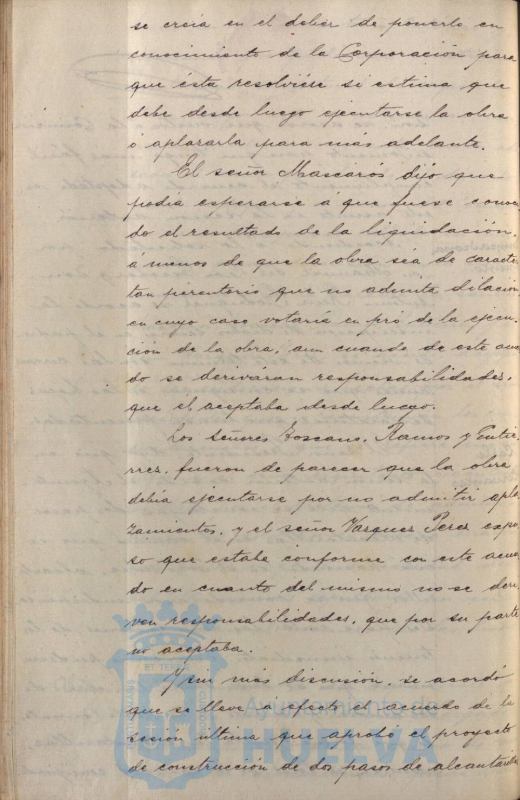 se creia en el deber de ponerlo en
conocimiento de la Corporación para
que ésta resolviése si estima que
debe desde luego ejecutarse la obra
ó aplararla para más adelante.
El señor Mascarós dijo que
podia esperarse á que fuese conoci
do el resultado de la liquidación,
á menos de que la obra séa de caracte
tan perentorio que no admita dilación
en cuyo caso votaría en pró de la ejecu-
ción de la obra, aun cuando de este acuer
do se deriváran responsabilidades,
que él aceptaba desde luego.
Los señores Toscano, Ramos y Gutie-
rrez, fueron de parecer que la obra
debia ejecutarse por no admitir apla
zamientos, y el señor Vazquez Perez expu
so que estaba conforme con este acuer
do en cuanto del mismo no se deri
ven responsabilidades, que por su parte
no aceptaba.
Y sin más discusión, se acordó
que se lleve á efecto el acuerdo de la
sesión última que aprobó el proyecto
de construcción de dos pasos de alcantarilla
Ayuntamiento de
HUELVA